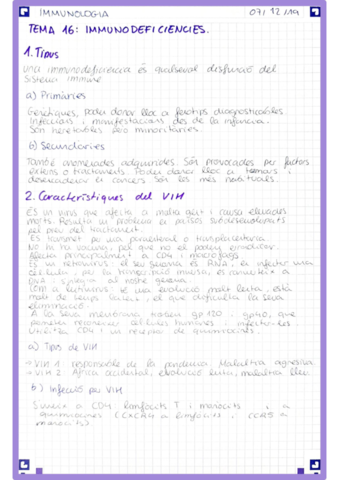 IMMUNOLOGIA 07/12/19
TEMA 16: IMMUNODEFICIENCIES.
1. Tipus
Una immunodeficiencia és qualsevol disfunció del
sistema immune
a) Primàries
Genètiques, poden donar lloc a fenotips diagnosticables
Infeccions i manifestacions des de la infancia.
Són heretables però minoritaries.
b) Secundàries
També anomenades adquirides. Són provocades per factors
externs o tractaments. Poden donar lloc a
desencadenar a cancers Són les més habituals.
2. Característiques del VIH
És un virus que afecta a molta gent i causa elevades
morts. Resulta un problema en països subdesenvolupats
pel preu del tractament.
Es transmet per via parenteral o transplacentaria.
No hi ha vacuna, pel que no el poden erradicar.
Afecta principalment a CD4 i macròfags
És un retrovirus, el seu genoma és RNA, en infectar una
cèl·lula, per la transcripció inversa, es converteix a
DNA i s'integra al nostre genoma.
Com a lentivirus té una evolució molt lenta, està
molt de temps latent, el que dificulta la seva
eliminació.
A la seva membrana trobem gp120 i gp40, que
permeten reconeixer cèl·lules humanes i infectar-les
Utilitza CD4 i un receptor de quimiocines.
a) Tipus de VIH
→ VIH 1: responsable de la pandemia Malaltia agressiva
→ VIH 2: Àfrica occidental, evolució lenta, malaltia lleu
b) Infecció per VIH
S'uneix a CD4 limfocits T i monocits i a
quimiocines (CXCR4 a limfocits i CCR5 a
monocits).